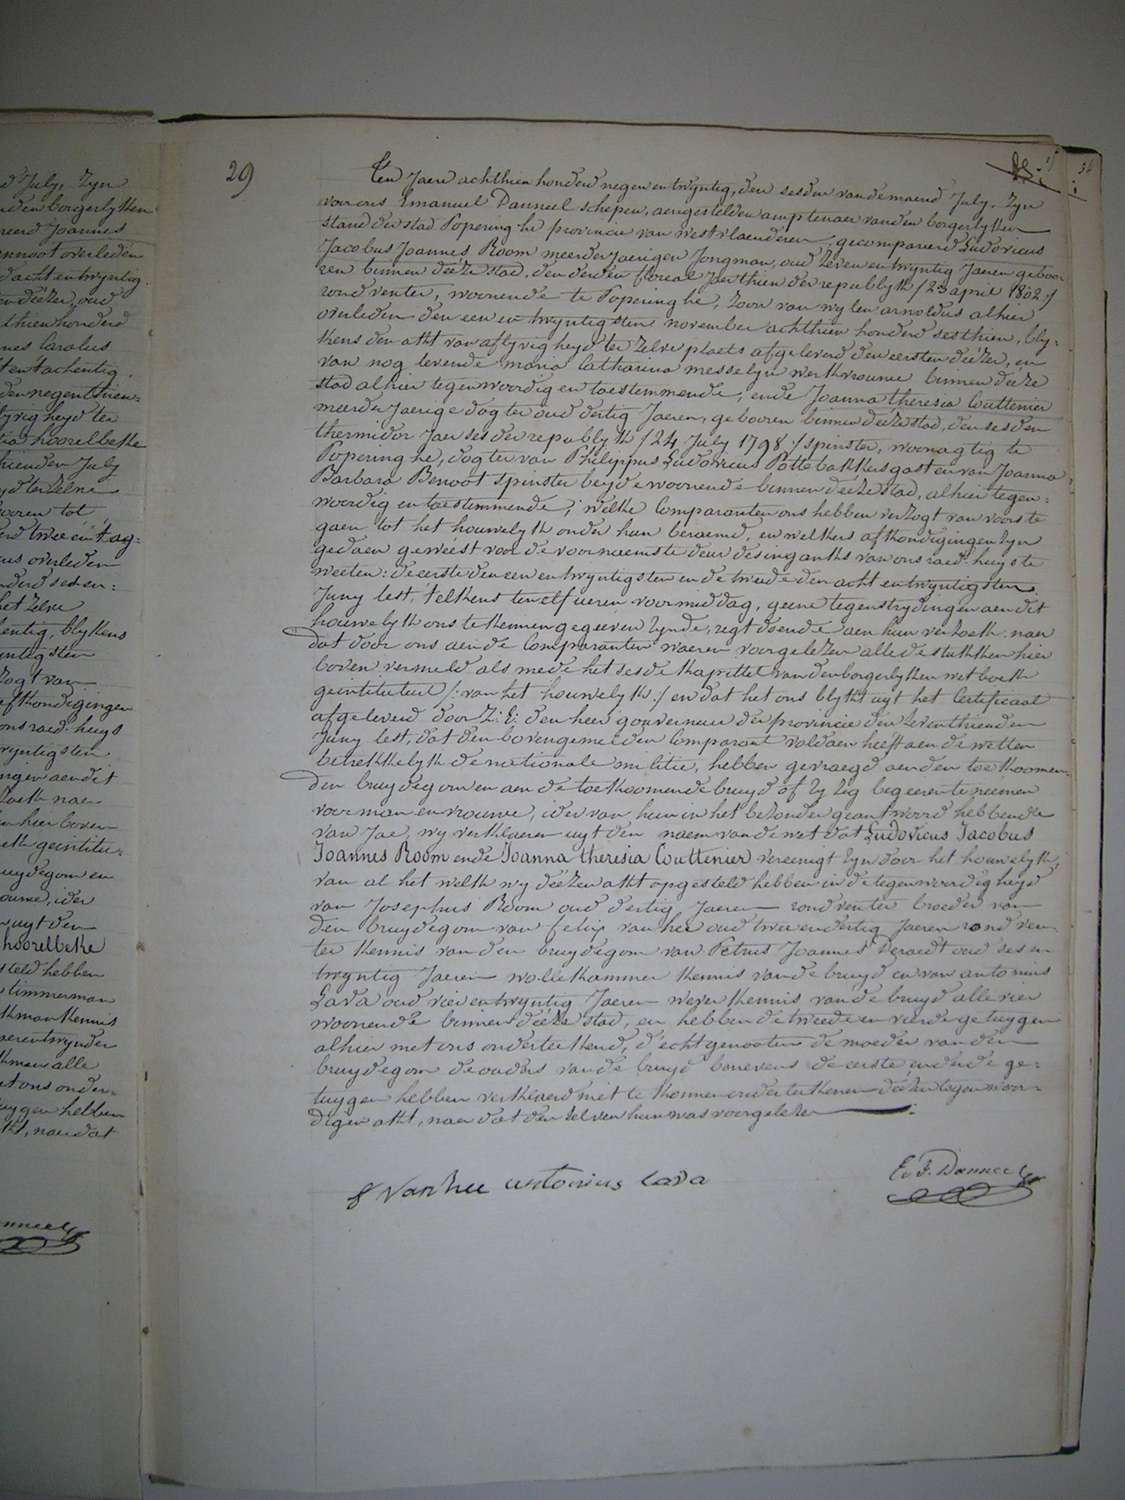 29
Ten Jaere achthien honderd negen en twyntig, den sesden van de maend July, zyn
voor ons Emanuel Danneel schepen, aengestelden amptenaer van den borgerlyken
stand der stad Poperinghe provincie van westvlaenderen, gecompareerd Ludovicus
Jacobus Joannes Room meerderjaerigen Jongman, oud zeven en twyntig Jaeren geboo-
ren binnen deéze stad, den derden floreal Jaer thien der republyk /23 april 1802:/
rondventer, woonende te Poperinghe, zoon van wylen arnoldus alhier
overleden den een en twyntigsten november achthien honderd sesthien, bly-
kens den akt van aflyvigheyd ter zelve plaets afgeleverd den eersten deézer, en
van nog levende maria Catharina messelyn werkvrouwe binnen deéze
stad alhier tegenwoordig en toestemmende; ende Joanna theresia Couttenier
meerderJaerige dogter oud dertig Jaeren, gebooren binnen deéze stad, den sesden
thermidor Jaer ses der republyk /24 July 1798:/ spinster, woonagtig te
Poperinghe, dogter van Philippus Ludovicus Pottebakkersgast en van Joanna
Barbara Benoot spinster beyde woonende binnen deéze stad, alhier tegen:
woordig en toestemmende; welke Comparanten ons hebben verzogt van voorste
gaen tot het houwelyk onder hun beraemd, en welkers afkondigingen zyn
gedaen geweést voor de voornaemste deur des inganks van ons raed-huys te
weeten: de eerste den een en twyntigsten en de tweede den acht en twyntigsten
Juny lest, telkens ten elf ueren voormiddag, geene tegenstrydingen aen dit
houwelyk ons te kennen gegeeven zynde, regt doende aen hun verzoek, naer
dat door ons aen de Comparanten waeren voorgelezen alle de stukken hier
boven vermeld als mede het sesde kapittel van den borgerlyken wetboek
geintituleert /: van het houwelyk :/ en dat het ons blykt uyt het Certificaet
afgeleverd door Z: E: den heer gouverneur der provincie den zeventhienden
Juny lest, dat den bovengemelden Comparant voldaen heéft aen de wetten
betrekkelyk de nationale militie, hebben gevraegd aen den toekoomen-
den bruydegom en aen de toekoomende bruyd of zy zig begeeren te neemen
voor man en vrouwe, ider van hun in het bezonder geantwoord hebbende
van Jae, wy verklaeren uyt den naem van de wet dat Ludovicus Jacobus
Joannes Room ende Joanna theresia Couttenier vereenigt zyn door het houwelyk,
van al het welk wy deézen akt opgesteld hebben in de tegenwoordigheyd
van Josephus Room oud dertig Jaeren rondventer broeder van
den bruydegom van felix van hee oud twee en dertig Jaeren rond ven-
ter kennis van den bruydegom van Petrus Joannes Deraedt oud ses en
twyntig Jaeren wollekammer kennis van de bruyd en van antonius
Lava oud vier en twyntig Jaeren wever kennis van de bruyd alle vier
woonende binnen deéze stad, en hebben de tweede en vierde getuygen
alhier met ons onderteekend, d'echtgenooten de moeder van den
bruydegom de ouders van de bruyd benevens de eerste en derde ge-
tuygen hebben verklaerd niet te konnen onderteekenen deézen tegenwoor-
digen akt, naer dat den zelven hun was voorgelezen
f Vanhee antonius Lava
E. F. Danneel